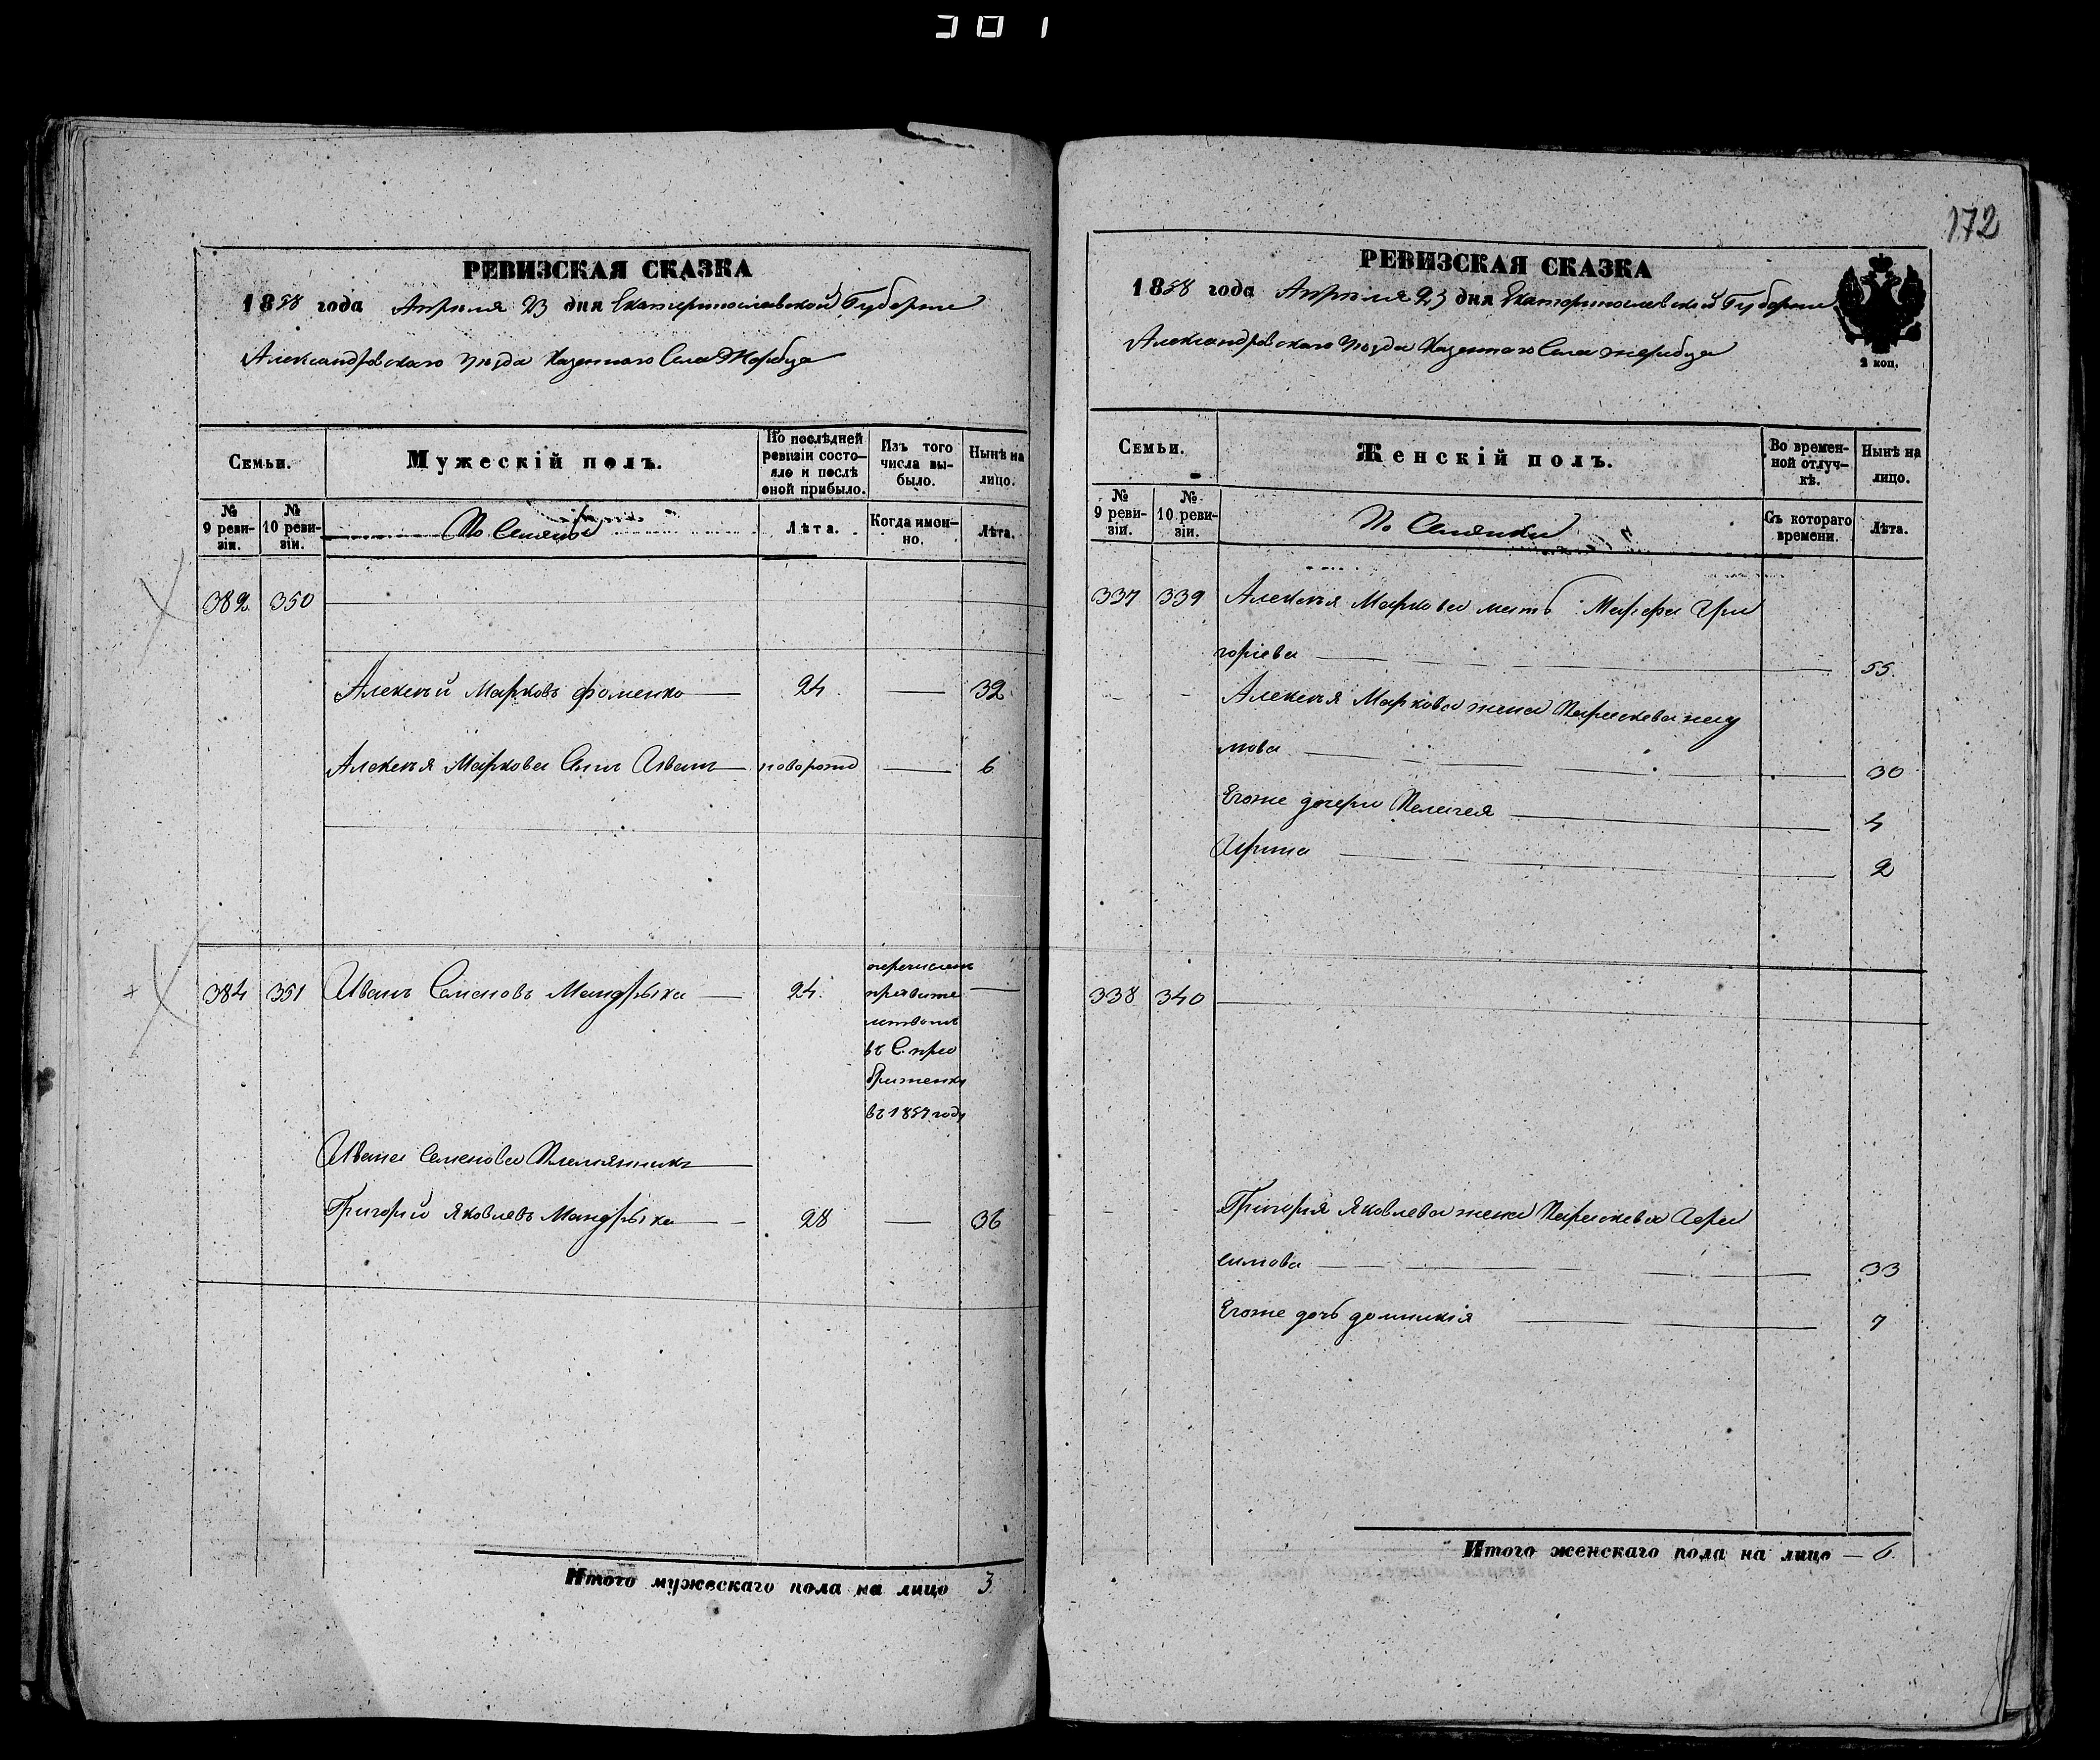 301
РЕВИЗСКАЯ СКАЗКА
1858 года Апреля 23 дня Екатеринославской Губернии
Александровскаго уѣзда Казеннаго Села Жеребца
Семьи.
Мужескій полъ.
По послѣдней ревизіи состояло и послѣ оной прибыло.
Изъ того числа выбыло.
Нынѣ на лицо.
№ 9 ревизіи.
№ 10 ревизіи.
Лѣта.
Когда именно.
Лѣта.
382 350
Алексѣй Марковъ Фоменко 24 32
Алексѣя Маркова Сынъ Иванъ новорожд 6
384 351 Иванъ Семеновъ Мандрыка 24
перечисленъ
правите
льтвомъ
въ С. прео
браженку
въ 1857 году
Ивана Семенова Племянникъ
Григорій Яковлевъ Мандрыка 28 36
Итого мужескаго пола на лицо 3
172
РЕВИЗСКАЯ СКАЗКА
1858 года Апрѣля 23 дня Екатеринославской Губернии
Александровскаго уѣзда Казеннаго Села жеребца
2 коп.
Семьи.
Женскій полъ.
Во временной отлучкѣ.
Нынѣ на лицо.
№ 9 ревизіи.
№ 10 ревизіи.
Съ котораго времени.
Лѣта.
337 339 Алексѣя Маркова мать Марфа Гри
горіева 55
Алексѣя Маркова жена Параскева нау
мова 30
Егоже дочери Пелагея 4
Ирина 2
338 340
Григорія Яковлева жена Параскева Гера
симова 33
Егоже дочь домникія 7
Итого женскаго пола на лицо 6.